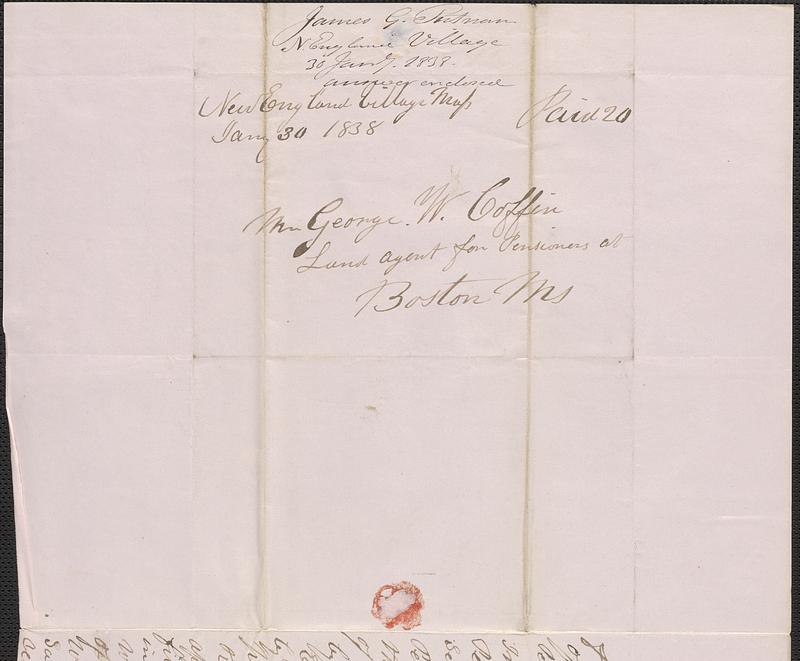 James G. Putnam
N England Village
30 Jany. 1838.
answer enclosed
New England Village Mass
Jany 30 1838
Paid 20
Mr George. W. Coffin
Land agent for Pensioners at
Boston Ms